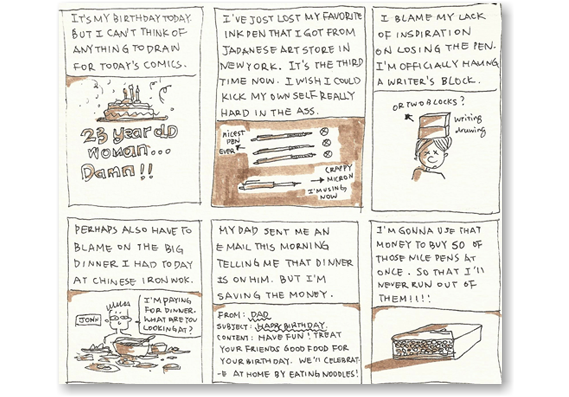 IT'S MY BIRTHDAY TODAY.
BUT I CAN'T THINK OF
ANYTHING TO DRAW
FOR TODAY'S COMICS.
23 year old
woman...
Damn!!
I'VE JUST LOST MY FAVORITE
INK PEN THAT I GOT FROM
JAPANESE ART STORE IN
NEW YORK. IT'S THE THIRD
TIME NOW. I WISH I COULD
KICK MY OWN SELF REALLY
HARD IN THE ASS.
NICEST
PEN
EVER
CRAPPY
MICRON
I'M USING
NOW
I BLAME MY LACK
OF INSPIRATION
ON LOSING THE PEN.
I'M OFFICIALLY HAVING
A WRITER'S BLOCK.
OR TWO BLOCKS?
writing
drawing
PERHAPS ALSO HAVE TO
BLAME ON THE BIG
DINNER I HAD TODAY
AT CHINESE IRON WOK.
I'M PAYING
FOR DINNER.
WHAT ARE YOU
LOOKING AT?
MY DAD SENT ME AN
E-MAIL THIS MORNING
TELLING ME THAT DINNER
IS ON HIM. BUT I'M
SAVING THE MONEY.
FROM: DAD
SUBJECT: HAPPY BIRTHDAY.
CONTENT: HAVE FUN! TREAT
YOUR FRIENDS GOOD FOOD FOR
YOUR BIRTHDAY. WE'LL CELEBRAT-
-E AT HOME BY EATING NOODLES!
I'M GONNA USE THAT
MONEY TO BUY 50 OF
THOSE NICE PENS AT
ONCE. SO THAT I'LL
NEVER RUN OUT OF
THEM!!!!